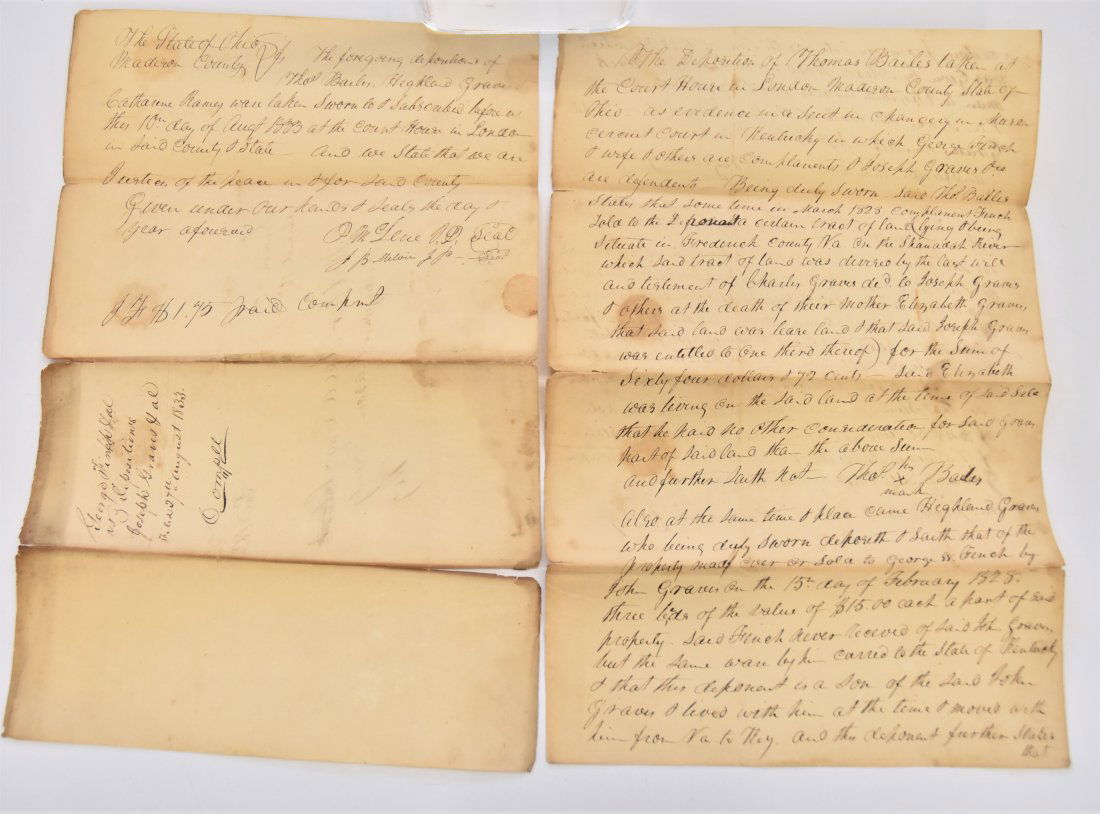 The State of Ohio
Madison County } ss The foregoing depositions of
Thos Bailes, Highland Graves
Catharine Ramey ware taken Sworn to & Subscribed before us
this 10th day of Augt 1833 at the Court House in London
in said County & State and we State that we are
Justices of the peace in & for said County
Given under our hands & seals the day &
year aforesaid
Seal
J B Melvin J P Seal
$1.75 paid Compnt
George Finch & al
Depositions
Joseph Graves & al
August 1833
Compllt
The Deposition of Thomas Bailes taken at
the Court House in London Madison County State of
Ohio as evidence in a suit in chancery in
circuit Court in Kentucky in which George Finch
& wife & others are Complanents & Joseph Graves &co
are defendents Being duly sworn said Thos Bailes
States that some time in March 1828 Complanent Finch
Sold to the Deponent a certain tract of land lying & being
Situate in Frederick County Va on the Shanadah River
which said tract of land was devised by the last will
and testement of Charles Graves decd. to Joseph Graves
& others at the death of their mother Elizabeth Graves
that said land was lease land & that said Joseph Graves
was entitled to one third thereof) for the Sum of
Sixty four dollars & 72 cents - Said Elizabeth
was living on the said land at the time of said Sale
that he paid no other consideration for said Graves
part of said land than the above Sum
and further saith not - Thos his x mark Bailes
Also at the same time & place came Highland Graves
who being duly sworn deposeth & saith that of the
property made over or sold to George W. Finch by
John Graves on the 15th day of February 1828.
three beds of the value of $15.00 each a part of said
property. Said Finch never received of said Jn Graves
but the same ware by him carried to the State of Kentucky
& that this deponent is a son of the said John
Graves & lived with him at the time & moved with
him from Va to Ky. and this deponent further States
that